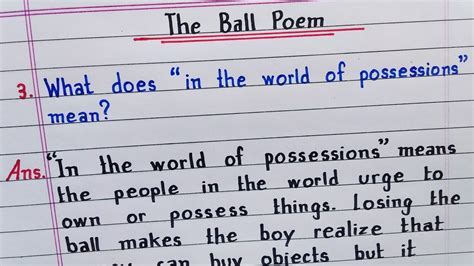 The Ball Poem
3. What does "in the world of possessions"
mean?
Ans. "In the world of possessions" means
the people in the world urge to
own or possess things. Losing the
ball makes the boy realize that
can buy objects but it